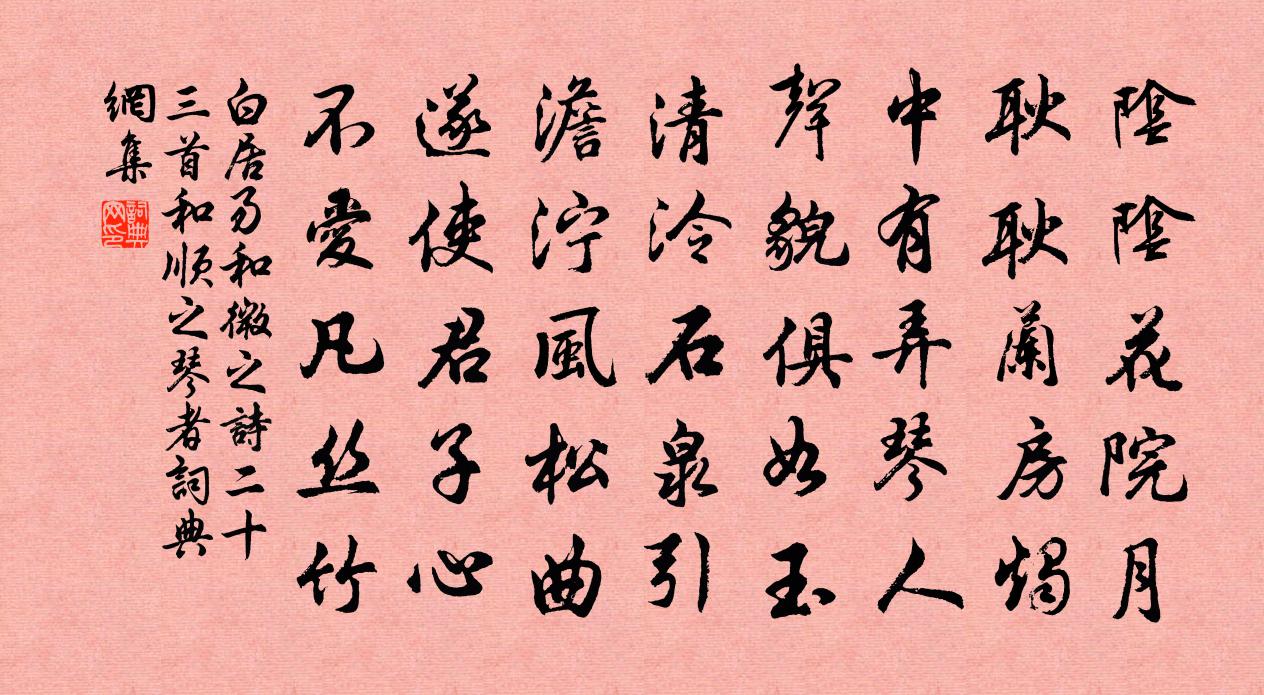 陰陰花院月
耿耿蘭房燭
中有弄琴人
聲貌俱如玉
清泠石泉引
澹泞風松曲
遂使君子心
不愛凡丝竹
白居易和微之詩二十
三首和順之琴者詞典
網集
詞典
网印